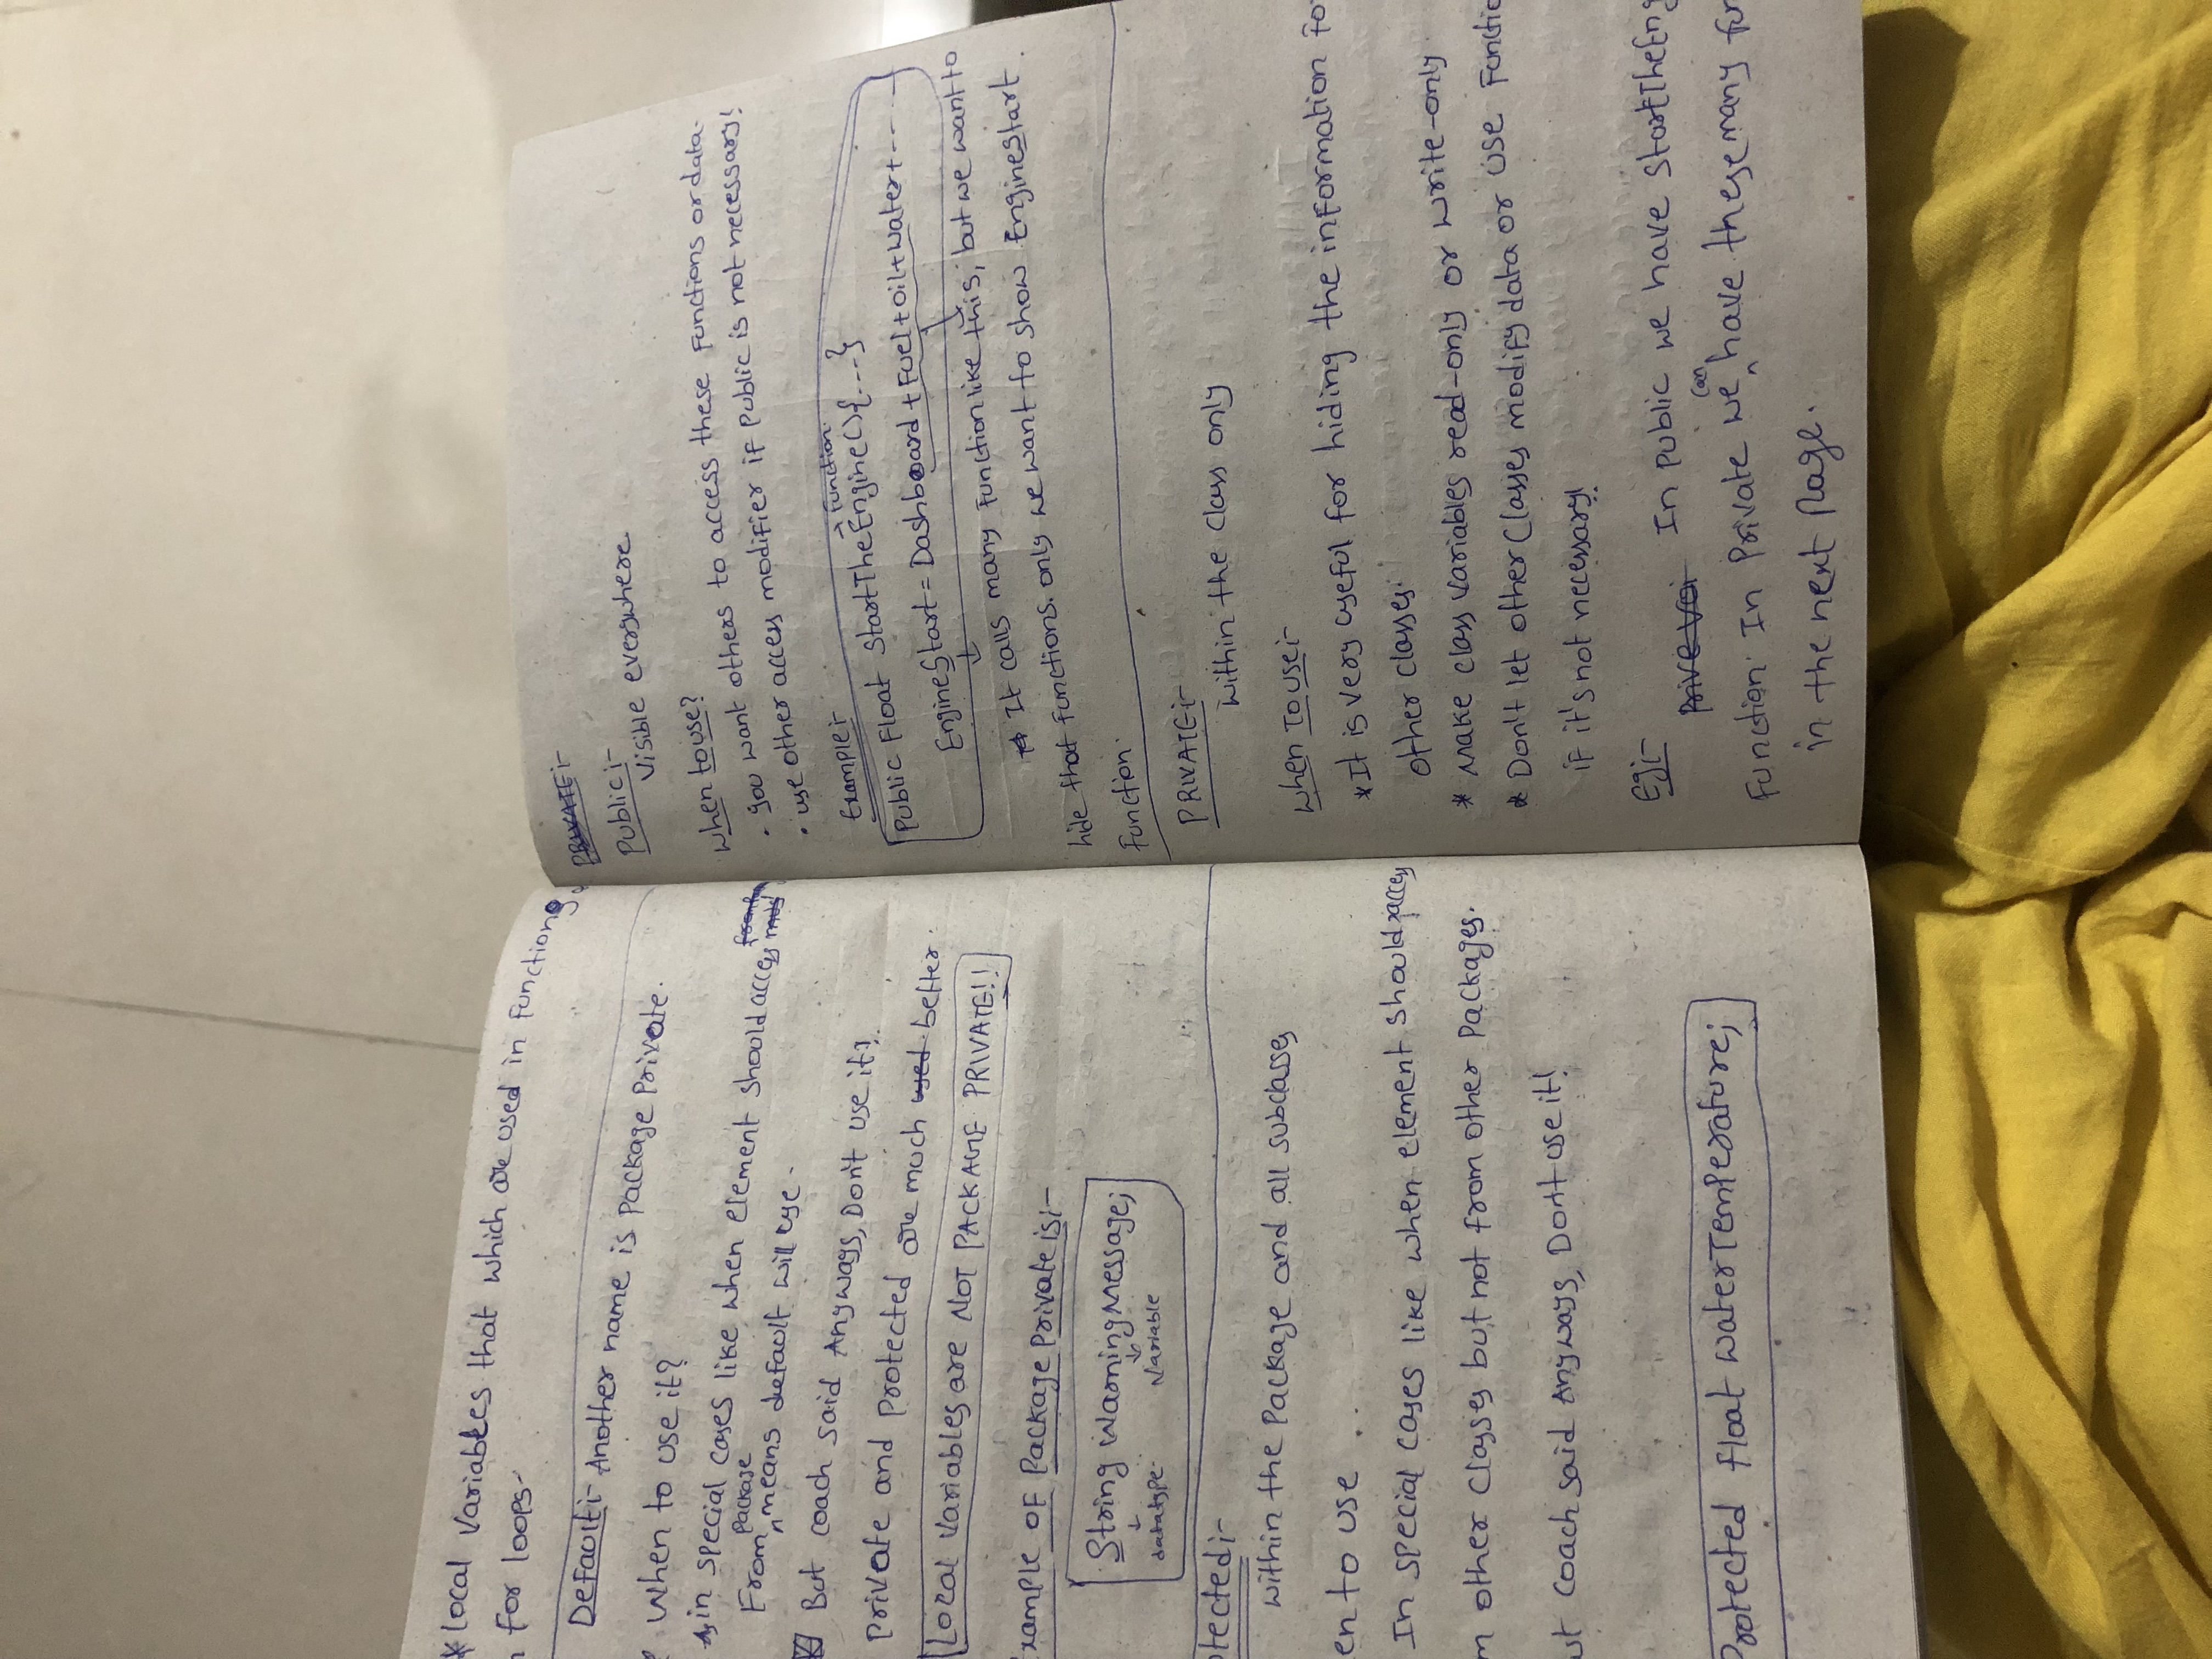 * Local Variables that which are used in functions,
n for loops-
Default:- Another name is Package Private.
When to use it?
in special cases like when element should access
From package means default will use.
But coach said Anyways, Don't use it!
Private and Protected are much used better.
Local Variables are NOT PACKAGE PRIVATE!!
xample of Package Private is:-
String WarningMessage;
datatype Variable
otected:-
within the Package and all subclasses
en to use ..
In special cases like when element should access
m other classes but not from other Packages.
ut coach said Anyways, Don't use it!
Protected float WaterTemperature;
PRIVATE:-
Public:-
Visible everywhere
When to use?
• you want others to access these functions or data.
• use other access modifier if Public is not necessary!
Example:-
→ function.
Public Float StartTheEngine(){----}
EngineStart = Dashboard + Fuel + oil + water + -----
* It calls many function like this, but we want to
hide that functions. only we want to show EngineStart
Function.
PRIVATE:-
within the class only
When To use:-
* It is very useful for hiding the information fo
other classes.
* Make class variables read-only or write-only
* Don't let other classes modify data or use Functio
if it's not necessary!
Eg:-
prive voi In public we have StartTheEng
function. In Private we can have these many fun
in the next Page.